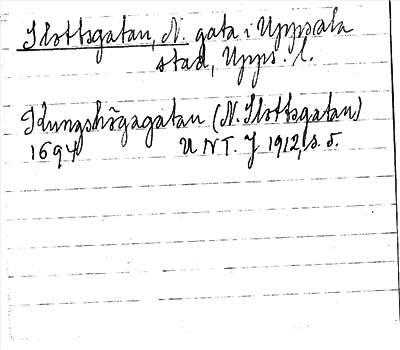 Slottsgatan, N. gata i Uppsala
stad, Upps. l.
Kungshögagatan (N. Slottsgatan)
1694 UNT. J 1912, s. 5.